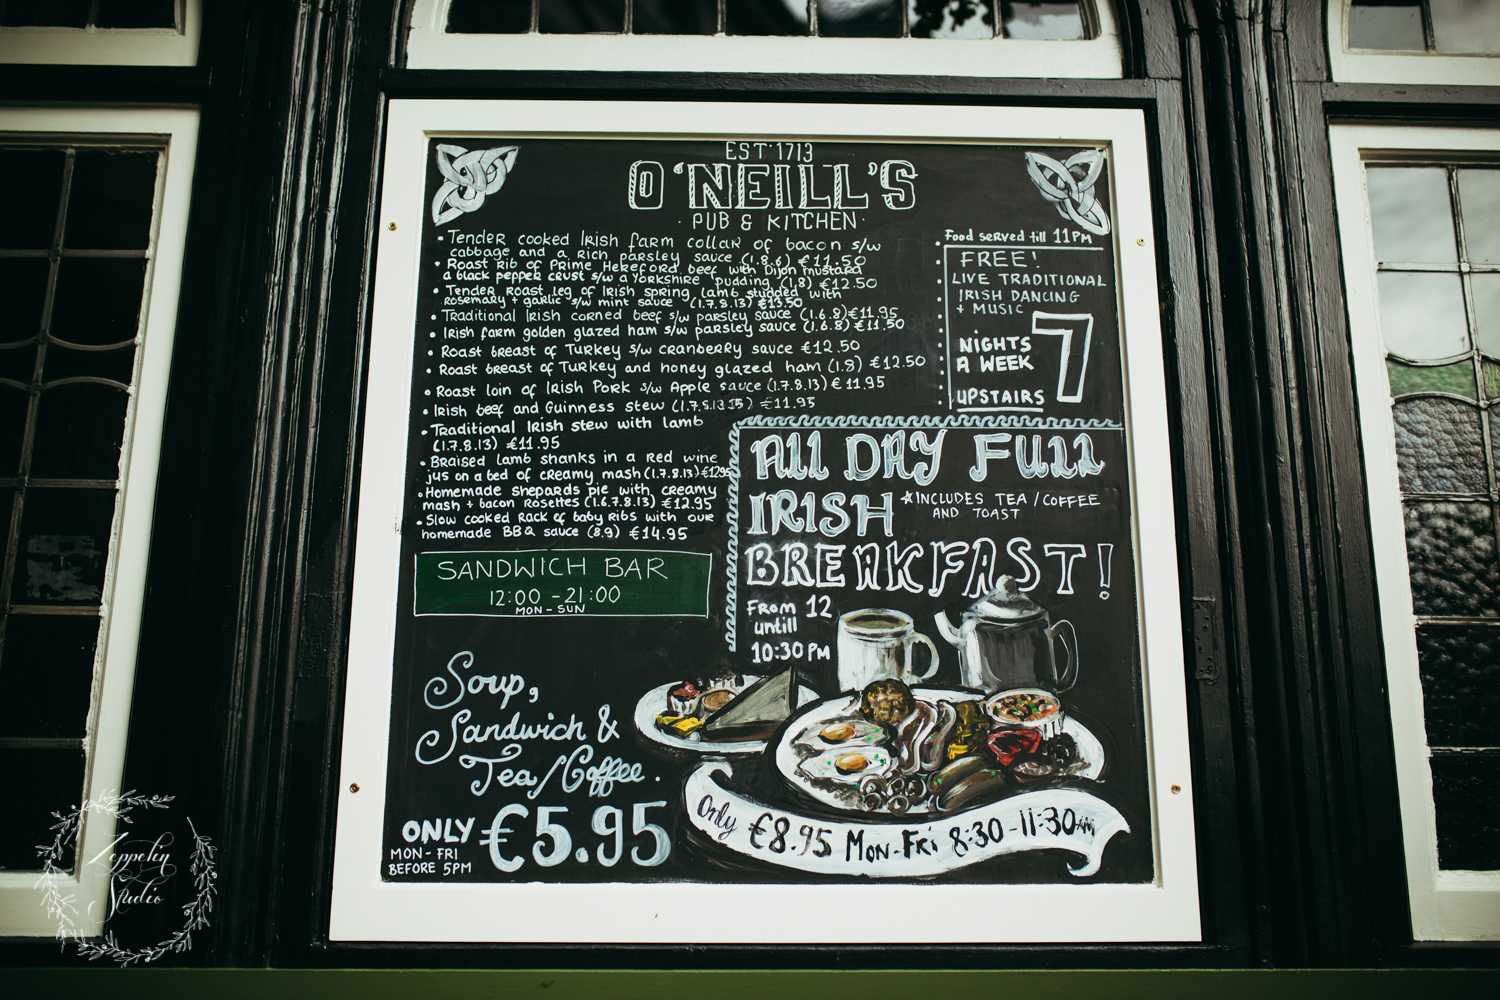 EST 1713
O'NEILL'S
· PUB & KITCHEN ·
• Tender cooked Irish farm collar of bacon s/w
cabbage and a rich parsley sauce (1.8.6) €11.50
• Roast Rib of Prime Hereford beef with Dijon mustard
a black pepper crust s/w a Yorkshire pudding (1,8) €12.50
• Tender Roast leg of Irish spring lamb studded with
rosemary + garlic s/w mint sauce (1.7.8.13) €13.50
• Traditional Irish corned beef s/w parsley sauce (1.6.8) €11.95
• Irish farm golden glazed ham s/w parsley sauce (1.6.8) €11.50
• Roast breast of Turkey s/w cranberry sauce €12.50
• Roast breast of Turkey and honey glazed ham (1.8) €12.50
• Roast loin of Irish Pork s/w Apple sauce (1.7.8.13) €11.95
• Irish beef and Guinness stew €11.95
• Traditional Irish stew with lamb
(1.7.8.13) €11.95
• Braised lamb shanks in a red wine
jus on a bed of creamy mash (1.7.8.13) €12.95
• Homemade shepards pie with creamy
mash + bacon Rosettes (1.6.7.8.13) €12.95
• Slow cooked Rack of baby Ribs with our
homemade BBQ sauce (8.9) €14.95
Food served till 11PM
FREE!
LIVE TRADITIONAL
IRISH DANCING
+ MUSIC
7
NIGHTS
A WEEK
UPSTAIRS
All DAY FUll
IRISH
*INCLUDES TEA / COFFEE
AND TOAST
BREAKFAST!
From 12
untill
10:30 PM
SANDWICH BAR
12:00 - 21:00
MON - SUN
Soup,
Sandwich &
Tea/Coffee.
ONLY €5.95
MON - FRI
BEFORE 5PM
Only €8.95 Mon-Fri 8:30-11:30AM
Zeppelin
Studio